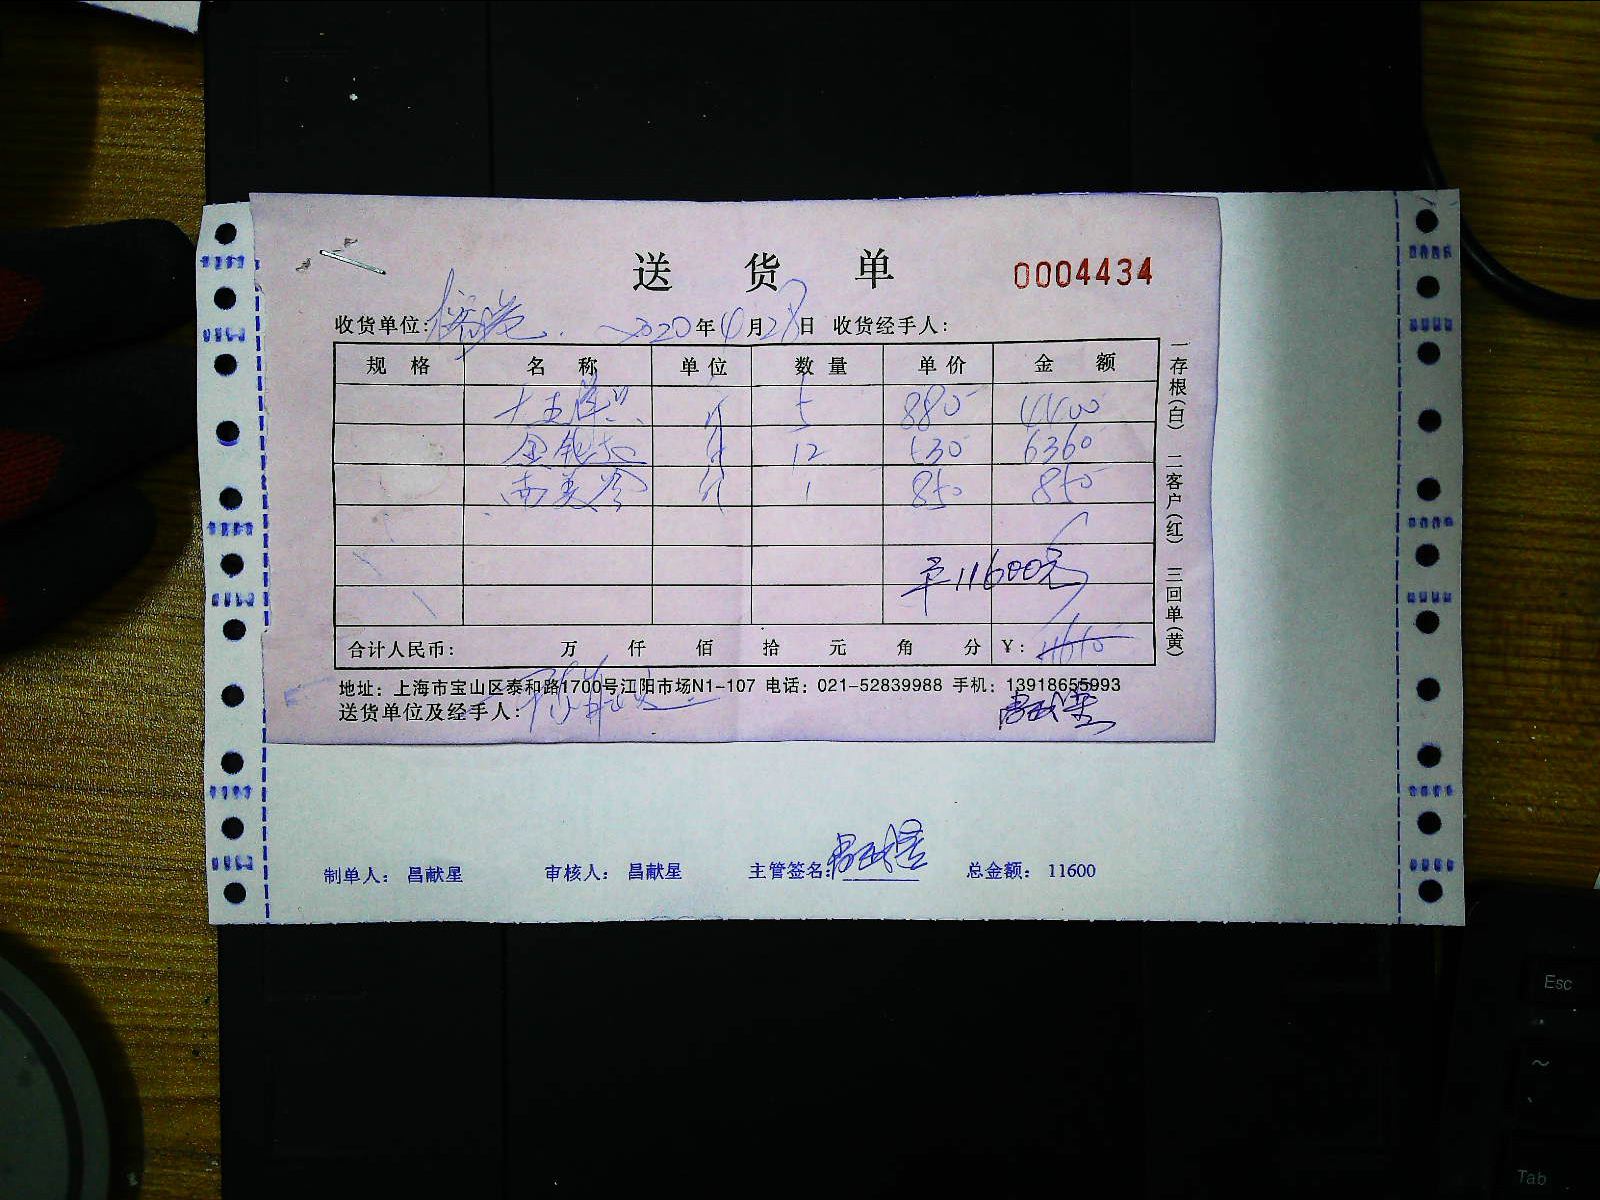 送 货 单 0004434
收货单位: 2020年4月28日 收货经手人:
规 格 名 称 单 位 数 量 单 价 金 额
5 880 4400
金银 12 530 6360
南美 1 850 850
11600元
合计人民币: 万 仟 佰 拾 元 角 分 ¥:
地址: 上海市宝山区泰和路1700号江阳市场N1-107 电话: 021-52839988 手机: 13918655993
送货单位及经手人:
一存根(白) 二客户(红) 三回单(黄)
制单人: 昌献星 审核人: 昌献星 主管签名: 昌献星 总金额: 11600
Esc
~
Tab